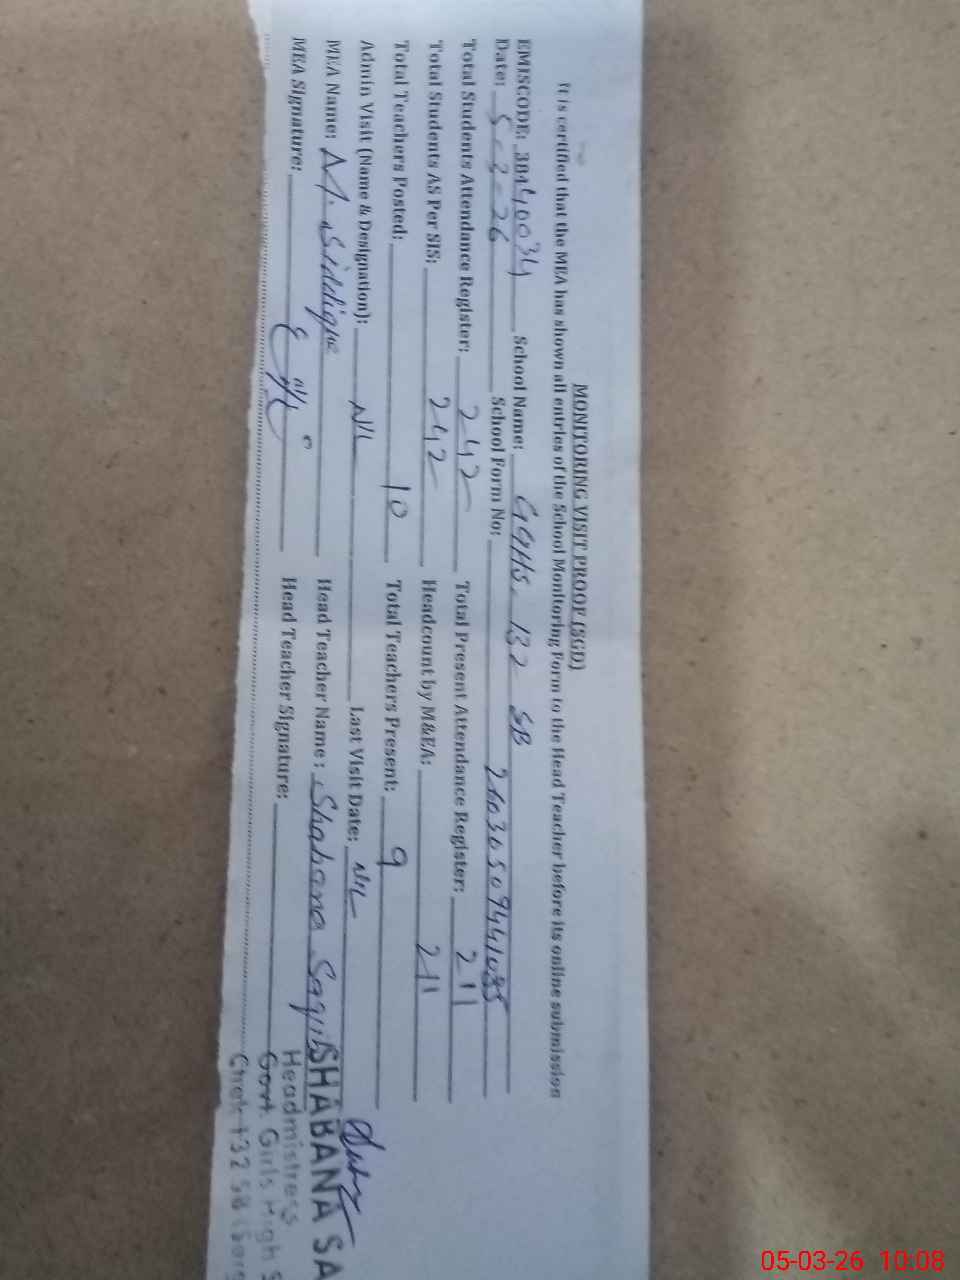 MONITORING VISIT PROOF (SGD)
It is certified that the MEA has shown all entries of the School Monitoring Form to the Head Teacher before its online submission
EMISCODE: 38440034 School Name: GGHS. 132 SB
Date: 5-3-26 School Form No:
Total Students Attendance Register: 242 Total Present Attendance Register: 211
Total Students AS Per SIS: 242 Headcount by M&EA: 211
Total Teachers Posted: 10 Total Teachers Present: 9
Admin Visit (Name & Designation): NIL Last Visit Date: NIL
MEA Name: M. Siddique Head Teacher Name: Shabana Saqib
MEA Signature: Head Teacher Signature:
SHABANA SA
Headmistress
Govt. Girls High S
Chak 132 SB (Sarg
05-03-26 10:08